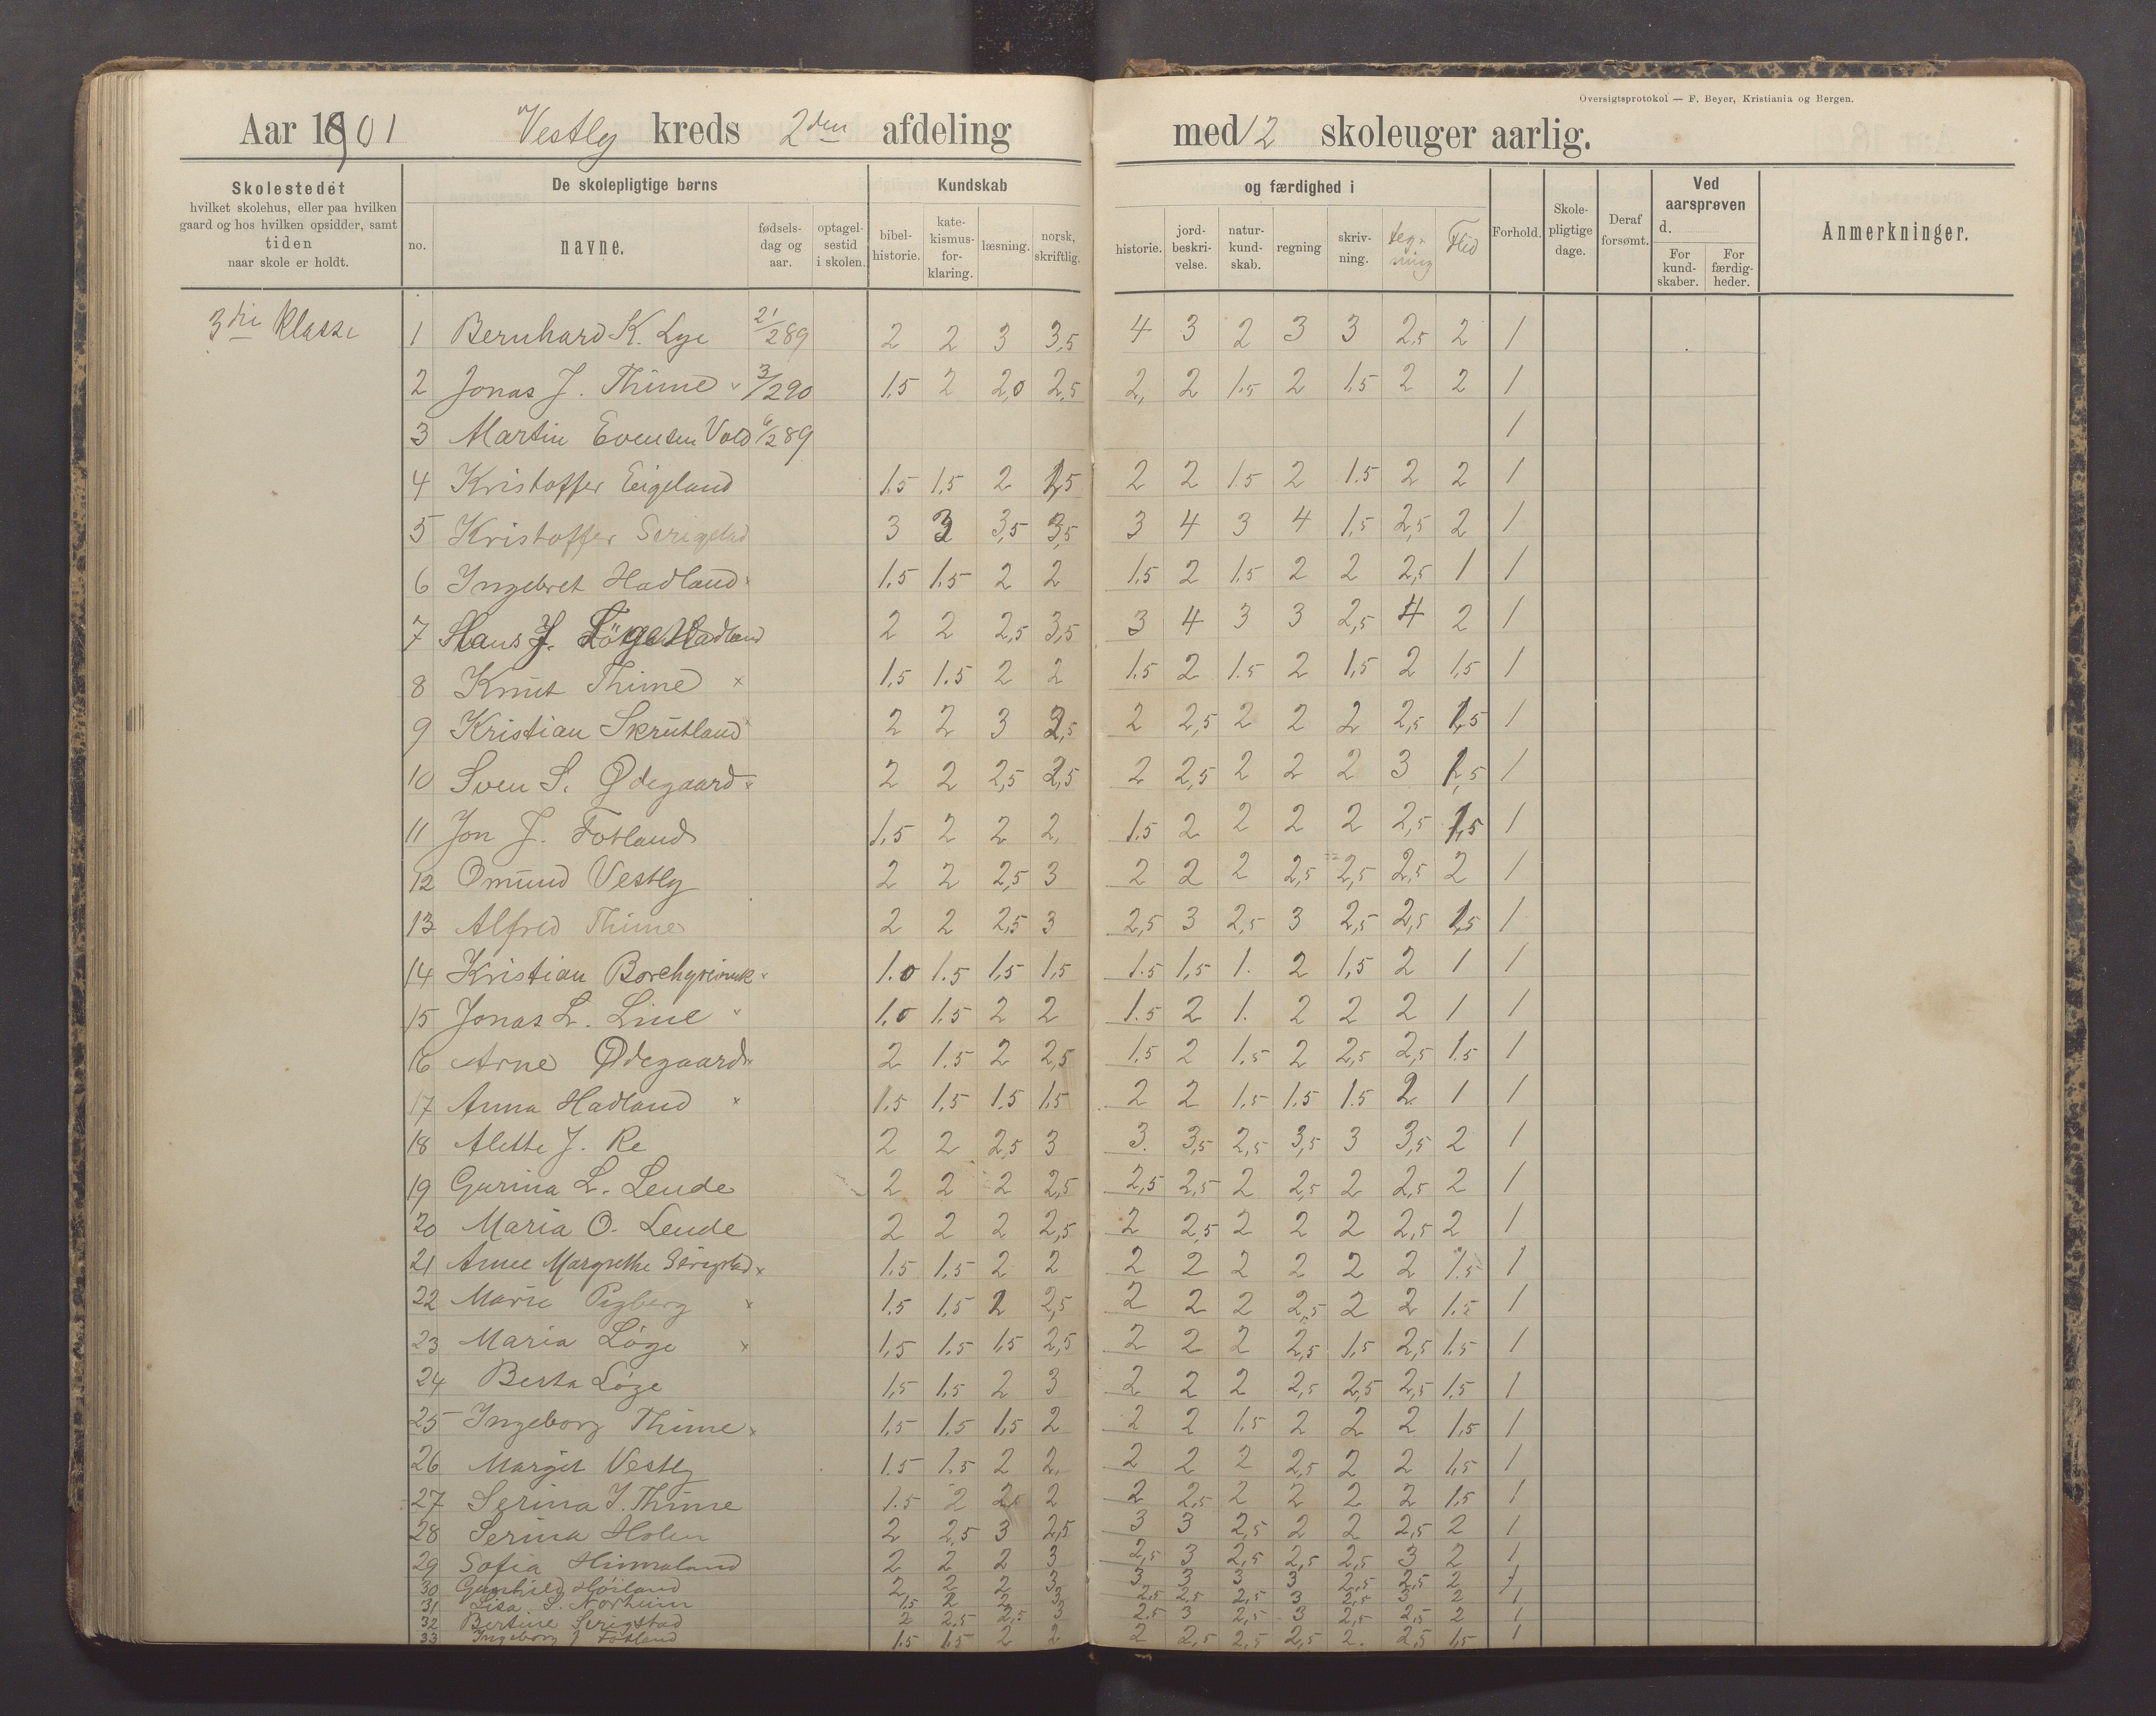 Oversigtsprotokol — F. Beyer, Kristiania og Bergen.
Aar 1901 Vestly kreds 2den afdeling med 12 skoleuger aarlig.
Skolestedet hvilket skolehus, eller paa hvilken gaard og hos hvilken opsidder, samt tiden naar skole er holdt.
De skolepligtige børns
no. navne. fødselsdag og aar. optagelsestid i skolen.
Kundskab og færdighed i
bibelhistorie. katekismusforklaring. læsning. norsk, skriftlig. historie. jordbeskrivelse. naturkundskab. regning skrivning. tegning Flid
Forhold. Skolepligtige dage. Deraf forsømt.
Ved aarsprøven d.
For kundskaber. For færdigheder.
Anmerkninger.
3die Klasse
1 Bernhard K. Lye 21/2 89 2 2 3 3,5 4 3 2 3 3 2,5 2 1
2 Jonas J. Thime 3/2 90 1,5 2 2,0 2,5 2, 2 1.5 2 1.5 2 2 1
3 Martin Evensen Vold 6/2 89 1
4 Kristoffer Eigeland 1.5 1.5 2 2,5 2 2 1.5 2 1.5 2 2 1
5 Kristoffer Serigstad 3 3 3,5 3,5 3 4 3 4 1,5 2,5 2 1
6 Ingebret Hadland 1.5 1.5 2 2 1.5 2 1.5 2 2 2,5 1 1
7 Hans J. Hadland 2 2 2,5 3,5 3 4 3 3 2,5 4 2 1
8 Knut Thime x 1,5 1.5 2 2 1.5 2 1.5 2 1,5 2 1,5 1
9 Kristian Skrutland 2 2 3 2,5 2 2,5 2 2 2 2,5 1,5 1
10 Sven S. Ødegaard 2 2 2,5 2,5 2 2,5 2 2 2 3 1,5 1
11 Jon J. Fotland 1,5 2 2 2, 1.5 2 2 2 2 2,5 1,5 1
12 Omund Vestly 2 2 2,5 3 2 2 2 2,5 2,5 2,5 2 1
13 Alfred Thime 2 2 2,5 3 2,5 3 2,5 3 2,5 2,5 1,5 1
14 Kristian Borchgrevink 1.0 1.5 1,5 1,5 1.5 1,5 1. 2 1,5 2 1 1
15 Jonas L. Line 1.0 1.5 2 2 1.5 2 1. 2 2 2 1 1
16 Arne Ødegaard 2 1.5 2 2,5 1.5 2 1.5 2 2,5 2,5 1.5 1
17 Anna Hadland x 1.5 1,5 1.5 1,5 2 2 1,5 1.5 1.5 2 1 1
18 Alette J. Re 2 2 2,5 3 3. 3,5 2,5 3,5 3 3,5 2 1
19 Gurina L. Lende 2 2 2 2,5 2,5 2,5 2 2,5 2 2,5 2 1
20 Maria O. Lende 2 2 2 2,5 2 2,5 2 2 2 2,5 2 1
21 Anne Margrethe Serigstad x 1.5 1.5 2 2 2 2 2 2 2 2 1.5 1
22 Marie x 1.5 1.5 2 2,5 2 2 2 2,5 2 2 1.5 1
23 Maria Løge x 1,5 1.5 1,5 2,5 2 2 2 2,5 1,5 2,5 1.5 1
24 Berta Løge 1,5 1,5 2 3 2 2 2 2,5 2,5 2,5 1,5 1
25 Ingeborg Thime x 1,5 1.5 1,5 2 2 2 1,5 2 2 2 1,5 1
26 Margit Vestly 1.5 1.5 2 2. 2 2 2 2,5 2 2 1,5 1
27 Serina J. Thime 1.5 2 2,5 2 2 2,5 2 2 2 2 1,5 1
28 Serina Holen 2 2,5 3 2,5 3 3 2,5 2 2 2,5 2 1
29 Sofia Himmaland 2 2 2 3 2,5 3 2,5 2,5 2,5 3 2 1
30 Gunhild Høiland 2 2 2 3 3 3 3 3 2,5 2,5 2 1
31 Lisa S. Norheim 1,5 2 2 3 2,5 2,5 2,5 3 2,5 3 2 1
32 Bertine Serigstad 2 2,5 2,5 3 2.5 3 2,5 3 2,5 2,5 2 1
33 Ingeborg J Fotland 1.5 1.5 2 2 2 2,5 2,5 2,5 2. 2,5 1,5 1